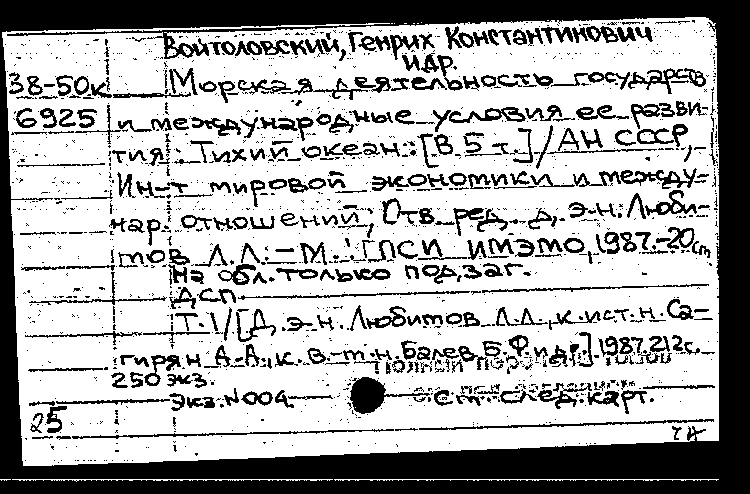 Войтоловский, Генрих Константинович
и др.
38-50к Морская деятельность государств
6925 и международные условия ее разви-
тия: Тихий океан: [В 5 т.] / АН СССР,
Ин-т мировой экономики и между-
нар. отношений; Отв. ред. д. э. н. Люби-
мов Л. Л. - М.: ГПСИ ИМЭМО, 1987.-20 см
На обл. только подзаг.
ДСП.
Т. 1/[Д. э. н. Любимов Л. Л., к. ист. н. Са-
гирян А. А., к. в.-т. н. Балев Б. Ф. и др.] 1987. 212 с.
Полный перечень томов
250 экз.
Экз. N 004. см. след. карт.
25